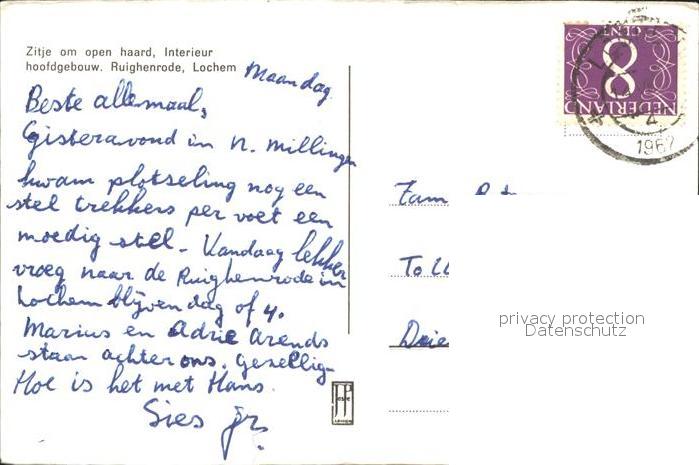 Zitje om open haard, Interieur
hoofdgebouw. Ruighenrode, Lochem
Maandag.
Beste allemaal,
Gisteravond in N. Millingen
kwam plotseling nog een
stel trekkers per voet een
moedig stel. Vandaag lekker
vroeg naar de Ruighenrode in
Lochem blijven dag of 4.
Marius en Adrie Arends
staan achter ons. Gezellig.
Hoe is het met Hans.
Sies Jr.
8 CENT
NEDERLAND
1967
Fam
To
Drie
privacy protection
Datenschutz